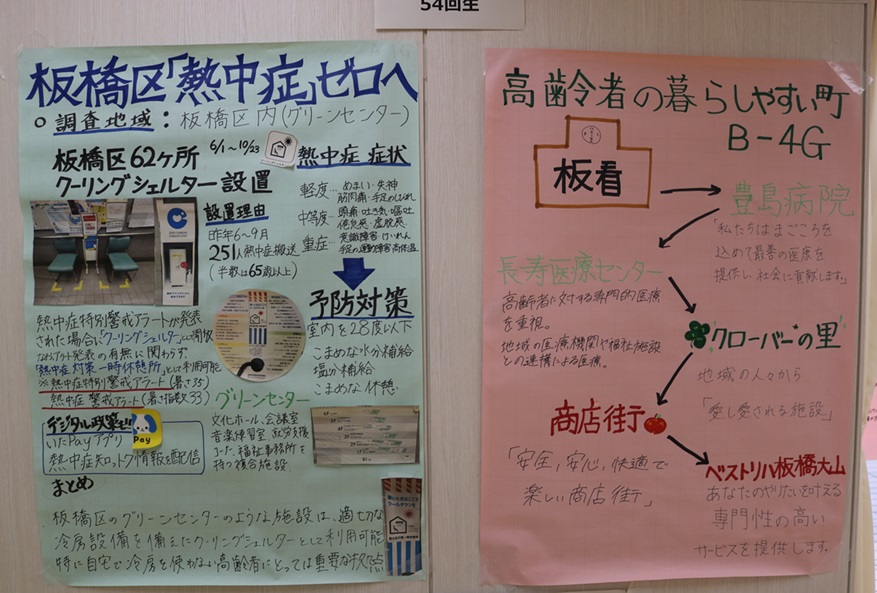 54回生
板橋区「熱中症」ゼロへ
○調査地域：板橋区内(グリーンセンター)
板橋区62ヶ所
6/1〜10/23
クーリングシェルター設置
設置理由
昨年6〜9月
251人熱中症搬送
(半数は65歳以上)
熱中症 症状
軽度…めまい・失神
筋肉痛・手足のしびれ
中等度…頭痛・吐き気・嘔吐
倦怠感・虚脱感
重症…意識障害・けいれん
手足の運動障害・高体温
予防対策
室内を28度以下
こまめな水分補給
塩分補給
こまめな休憩
熱中症特別警戒アラートが発表
された場合「クーリングシェルター」に開放
なおアラート発表の有無に関わらず
「熱中症対策一時休憩所」として利用可能
※熱中症特別警戒アラート(暑さ35)
熱中症警戒アラート(暑さ指数33)
グリーンセンター
文化ホール、会議室
音楽練習室、就労支援
コーナー、福祉事務所を
持つ複合施設
デジタル政策!!
いたPayアプリ
熱中症知っトク情報を配信
Pay
まとめ
板橋区のグリーンセンターのような施設は、適切な
冷房設備を備えたクーリングシェルターとして利用可能
特に自宅で冷房を使わない高齢者にとっては重要な拠点
高齢者の暮らしやすい町
B-4G
板看
豊島病院
「私たちはまごころを
込めて最善の医療を
提供し、社会に貢献します。」
長寿医療センター
高齢者に対する専門的医療
を重視。
地域の医療機関や福祉施設
との連携による医療。
クローバーの里
地域の人々から
「愛し愛される施設」
商店街
「安全、安心、快適で
楽しい商店街」
ベストリハ板橋大山
あなたのやりたいを叶える
専門性の高い
サービスを提供します。